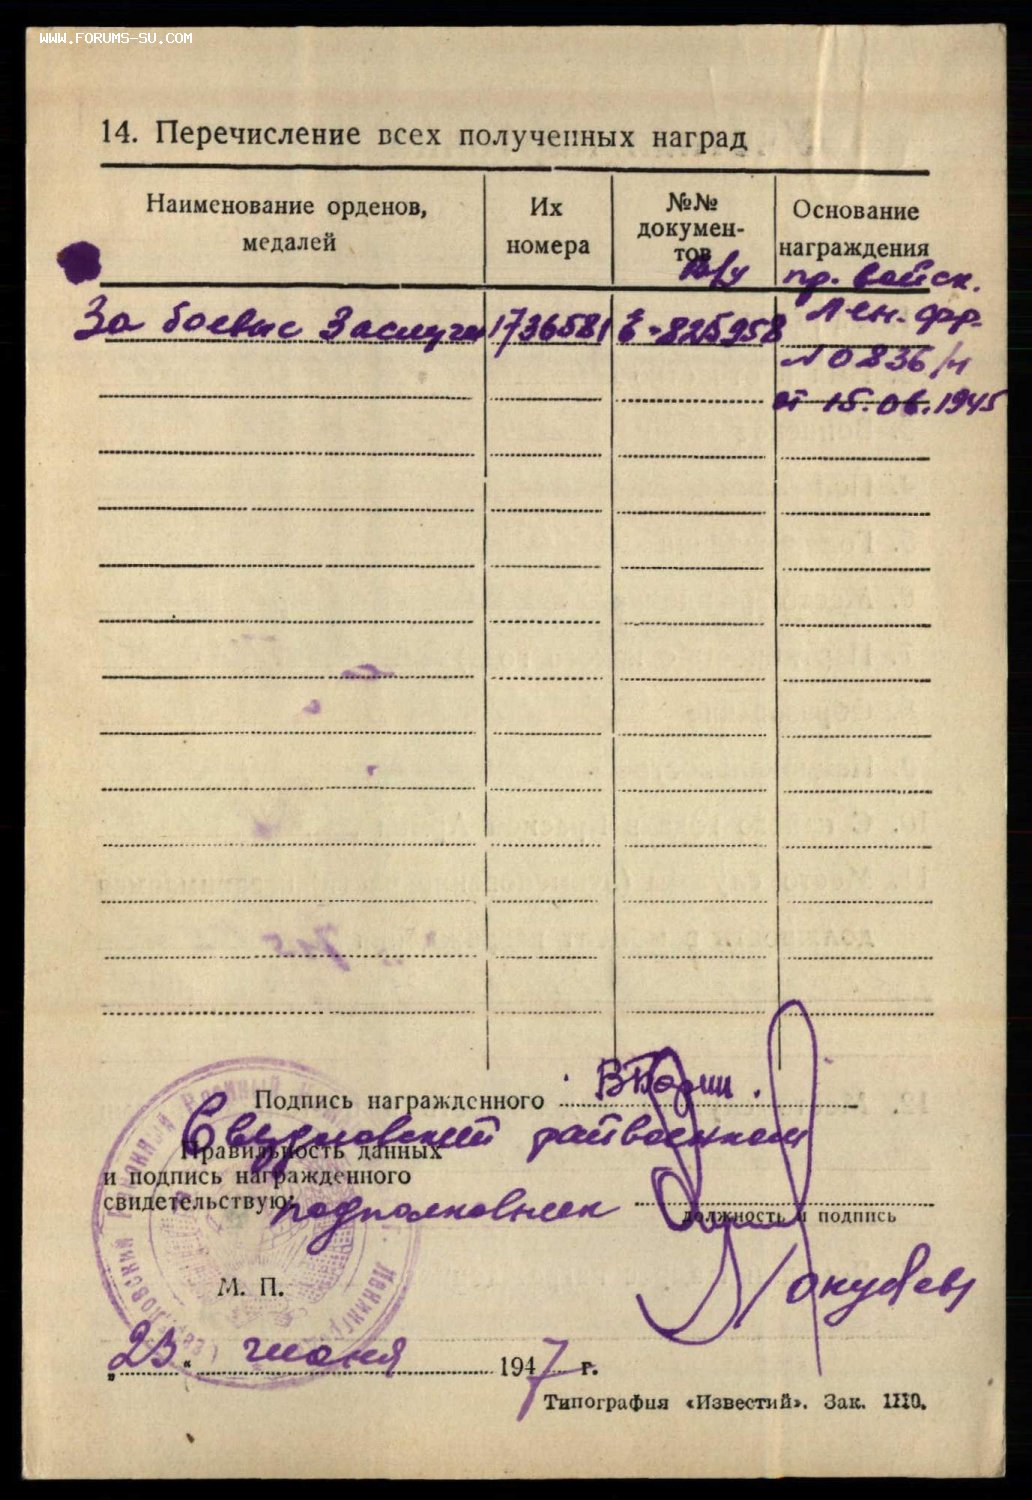 WWW.FORUMS-SU.COM
14. Перечисление всех полученных наград
Наименование орденов, медалей
Их номера
№№ докумен-тов
Основание награждения
В/у пр. войск.
За боевые Заслуги 1736581 Е-825958 Лен. фр.
№ 0836/н
от 15.06.1945
Подпись награжденного
Свердловский райвоенком
Правильность данных
и подпись награжденного
свидетельствую:
подполковник
должность и подпись
М. П.
„23“ июня 1947 г.
Типография «Известий». Зак. 1110.